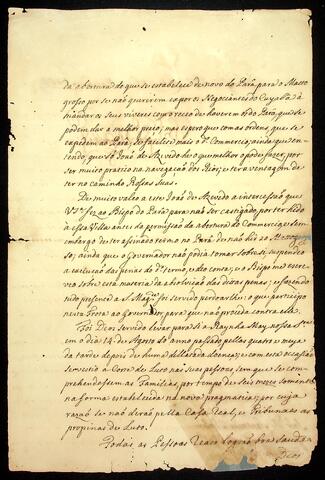 da abertura de que se estabelece de novo do Pará, para o Matto
grosso por se não quererem expor os Negociantes do Cuyabá a
mandar os seus viveres com o receio de hoverem do Pará, que se
podem dar a melhor preço; mas espero que com as ordens, que se
expedem ao Pará, se facilite mais o Commercio; ainda que en-
tendo, que só João de Azevedo he o que melhor o póde fazer, por
ser muito pratico na navegação dos Rios, e ter a ventagem de
ter no caminho Rossas suas.
De muito valeo a este João de Azevedo a intercessão que
V.S.ª fez ao Bispo do Pará para não ser castigado por ter hido
a essa Villa antes da permissão da abertura do Commercio, e sem
embargo de ter assinado termo no Pará de não hir ao Matto gros-
so; ainda que o Governador não podia tomar sobre si, suspendeo
a execução das penas do d.º termo, e deo conta; e o Bispo me escre-
veo sobre esta materia da absolvição das ditas penas; e fazendo
tudo presente a S. Mag.e foi servido perdoarlhe: o que participo
nesta Frota ao Governador para que não proceda contra elle.
Foi Deos servido levar para si a Raynha May, nossa Snr.ª
em o dia 14 de Agosto do anno passado pelas quatro e meya
da tarde depois de huma dilatada doença; e com esta occasião
se vestio a Corte de Luto nas suas pessoas, sem que se com-
prehendessem as Familias, por tempo de seis mezes somente
na forma estabelecida na nova pragmatica; por cuja
razão se não derão pella Casa Real, e Tribunaes as
propinas de Luto.
Todas as Pessoas Reaes logrão boa saude a
Deos